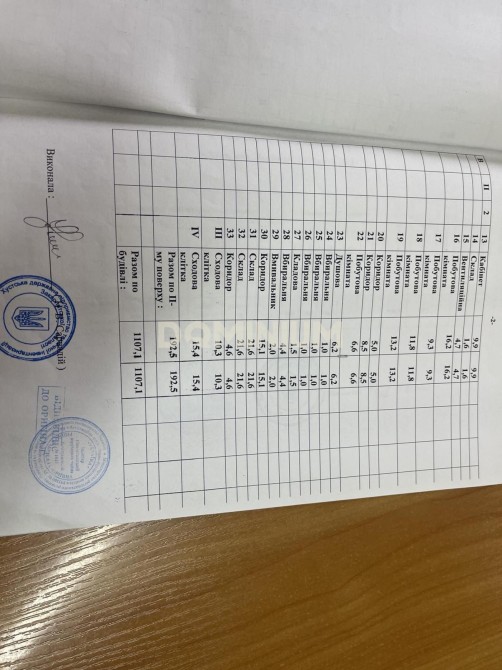 -2-
II II 2 13 Кабінет
14 Склад 9,9 9,9
15 Вентиляційна 1,6 1,6
16 Побутова 4,7 4,7
кімната 16,2 16,2
17 Побутова
кімната 9,3 9,3
18 Побутова
кімната 11,8 11,8
19 Побутова
кімната 13,2 13,2
20 Коридор 5,0 5,0
21 Коридор 8,5 8,5
22 Побутова 6,6 6,6
кімната
23 Душова 6,2 6,2
24 Вбиральня 1,0 1,0
25 Вбиральня 1,0 1,0
26 Вбиральня 1,0 1,0
27 Кладова 1,5 1,5
28 Вбиральня 4,4 4,4
29 Вмивальник 2,0 2,0
30 Коридор 15,1 15,1
31 Склад 21,6 21,6
32 Склад 21,6 21,6
33 Коридор 4,6 4,6
III Сходова 10,3 10,3
клітка
IV Сходова 15,4 15,4
клітка
Разом по II-
му поверху : 192,5 192,5
Разом по
будівлі : 1107,1 1107,1
Виконала :